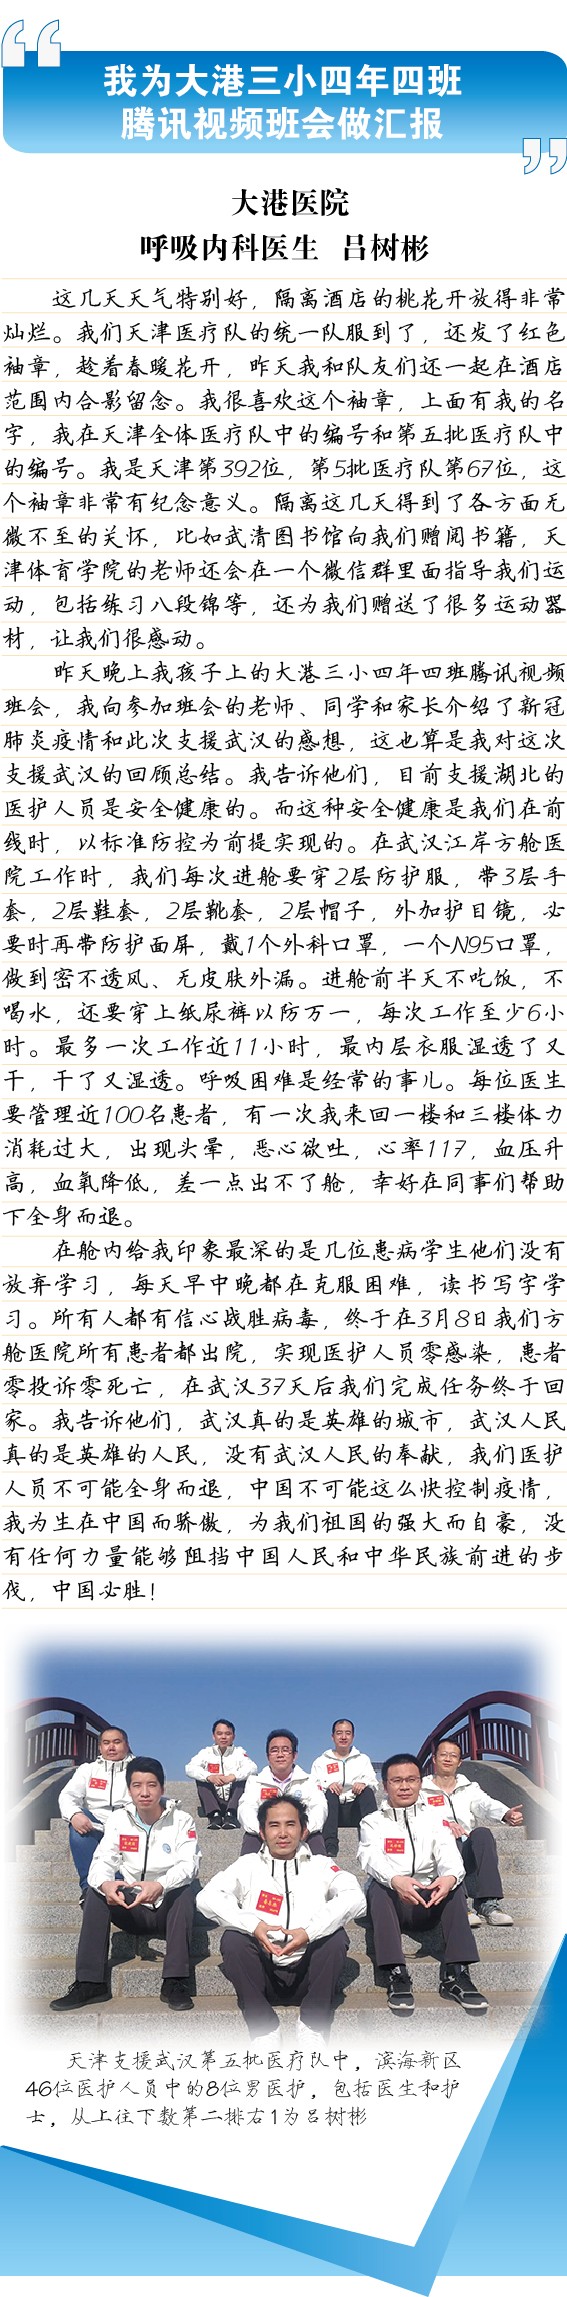 我为大港三小四年四班
腾讯视频班会做汇报
大港医院
呼吸内科医生 吕树彬
这几天天气特别好，隔离酒店的桃花开放得非常
灿烂。我们天津医疗队的统一队服到了，还发了红色
袖章，趁着春暖花开，昨天我和队友们还一起在酒店
范围内合影留念。我很喜欢这个袖章，上面有我的名
字，我在天津全体医疗队中的编号和第五批医疗队中
的编号。我是天津第392位，第5批医疗队第67位，这
个袖章非常有纪念意义。隔离这几天得到了各方面无
微不至的关怀，比如武清图书馆向我们赠阅书籍，天
津体育学院的老师还会在一个微信群里面指导我们运
动，包括练习八段锦等，还为我们赠送了很多运动器
材，让我们很感动。
昨天晚上我孩子上的大港三小四年四班腾讯视频
班会，我向参加班会的老师、同学和家长介绍了新冠
肺炎疫情和此次支援武汉的感想，这也算是我对这次
支援武汉的回顾总结。我告诉他们，目前支援湖北的
医护人员是安全健康的。而这种安全健康是我们在前
线时，以标准防控为前提实现的。在武汉江岸方舱医
院工作时，我们每次进舱要穿2层防护服，带3层手
套，2层鞋套，2层靴套，2层帽子，外加护目镜，必
要时再带防护面屏，戴1个外科口罩，一个N95口罩，
做到密不透风、无皮肤外漏。进舱前半天不吃饭，不
喝水，还要穿上纸尿裤以防万一，每次工作至少6小
时。最多一次工作近11小时，最内层衣服湿透了又
干，干了又湿透。呼吸困难是经常的事儿。每位医生
要管理近100名患者，有一次我来回一楼和三楼体力
消耗过大，出现头晕，恶心欲吐，心率117，血压升
高，血氧降低，差一点出不了舱，幸好在同事们帮助
下全身而退。
在舱内给我印象最深的是几位患病学生他们没有
放弃学习，每天早中晚都在克服困难，读书写字学
习。所有人都有信心战胜病毒，终于在3月8日我们方
舱医院所有患者都出院，实现医护人员零感染，患者
零投诉零死亡，在武汉37天后我们完成任务终于回
家。我告诉他们，武汉真的是英雄的城市，武汉人民
真的是英雄的人民，没有武汉人民的奉献，我们医护
人员不可能全身而退，中国不可能这么快控制疫情，
我为生在中国而骄傲，为我们祖国的强大而自豪，没
有任何力量能够阻挡中国人民和中华民族前进的步
伐，中国必胜！
天津支援武汉第五批医疗队中，滨海新区
46位医护人员中的8位男医护，包括医生和护
士，从上往下数第二排右1为吕树彬